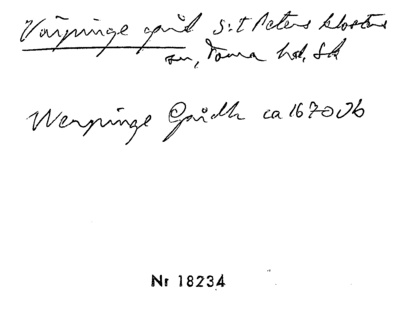 Värpinge gård S:t Peters klosters
sn, Torna hd, Sk
Werpinge Gårdh ca 1670 Jb
Nr 18234